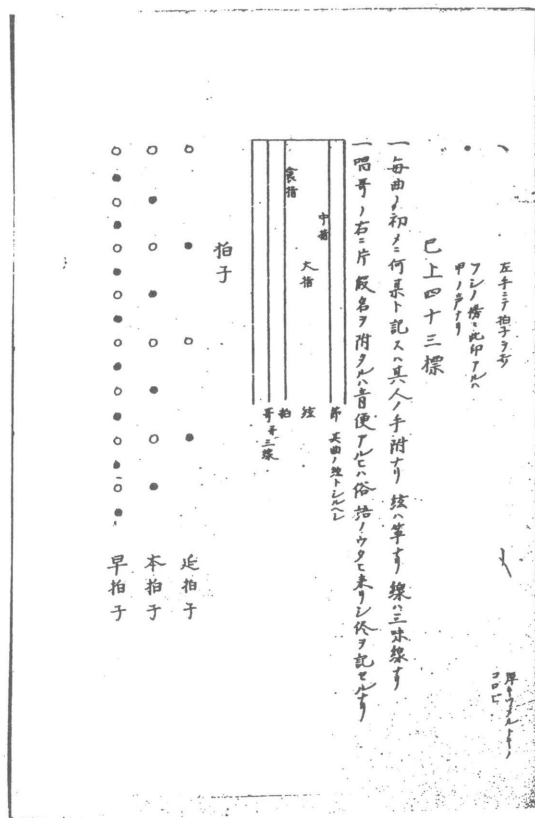 左手ニテ拍子ヲ打
フシノ傍ニ此印アルハ
甲ノ声ナリ
コロビ
已上四十三標
一 毎曲ノ初メニ何某ト記スハ其人ノ手附ナリ 絃ハ箏ナリ 線ハ三味線ナリ
一 唱哥ノ右ニ片假名ヲ附タルハ音便アルヒハ俗語ノウタヒ来リシ侭ヲ記セルナリ
節 其曲ノ 
中指
大指 絃
食指 拍
哥 三線
拍子
延拍子
本拍子
早拍子